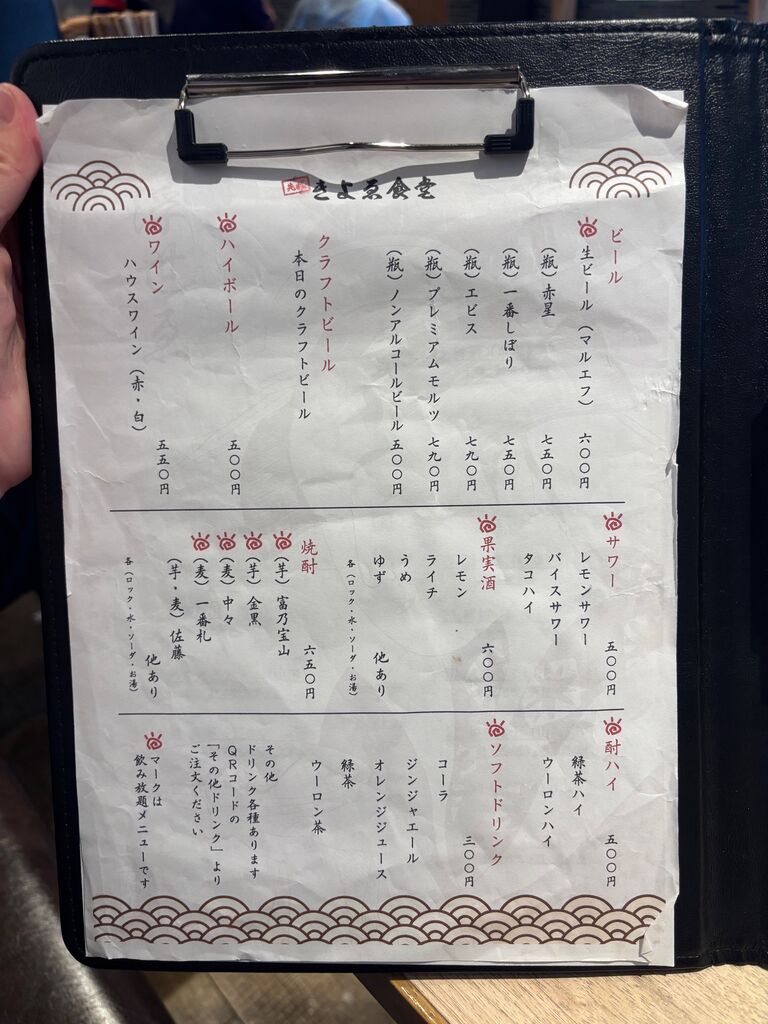 きよゑ食堂
ビール
生ビール（マルエフ） 六〇〇円
（瓶）赤星 七五〇円
（瓶）一番しぼり 七五〇円
（瓶）エビス 七九〇円
（瓶）プレミアムモルツ 七九〇円
（瓶）ノンアルコールビール 五〇〇円
クラフトビール
本日のクラフトビール
ハイボール 五〇〇円
ワイン 五五〇円
ハウスワイン（赤・白）
サワー 五〇〇円
レモンサワー
バイスサワー
タコハイ
果実酒 六〇〇円
レモン
ライチ
うめ
ゆず 他あり
各（ロック・水・ソーダ・お湯）
焼酎 六五〇円
（芋）富乃宝山
（芋）金黒
（麦）中々
（麦）一番札
（芋・麦）佐藤
他あり
各（ロック・水・ソーダ・お湯）
酎ハイ 五〇〇円
緑茶ハイ
ウーロンハイ
ソフトドリンク 三〇〇円
コーラ
ジンジャエール
オレンジジュース
緑茶
ウーロン茶
その他
ドリンク各種あります
QRコードの
「その他ドリンク」より
ご注文ください
マークは
飲み放題メニューです